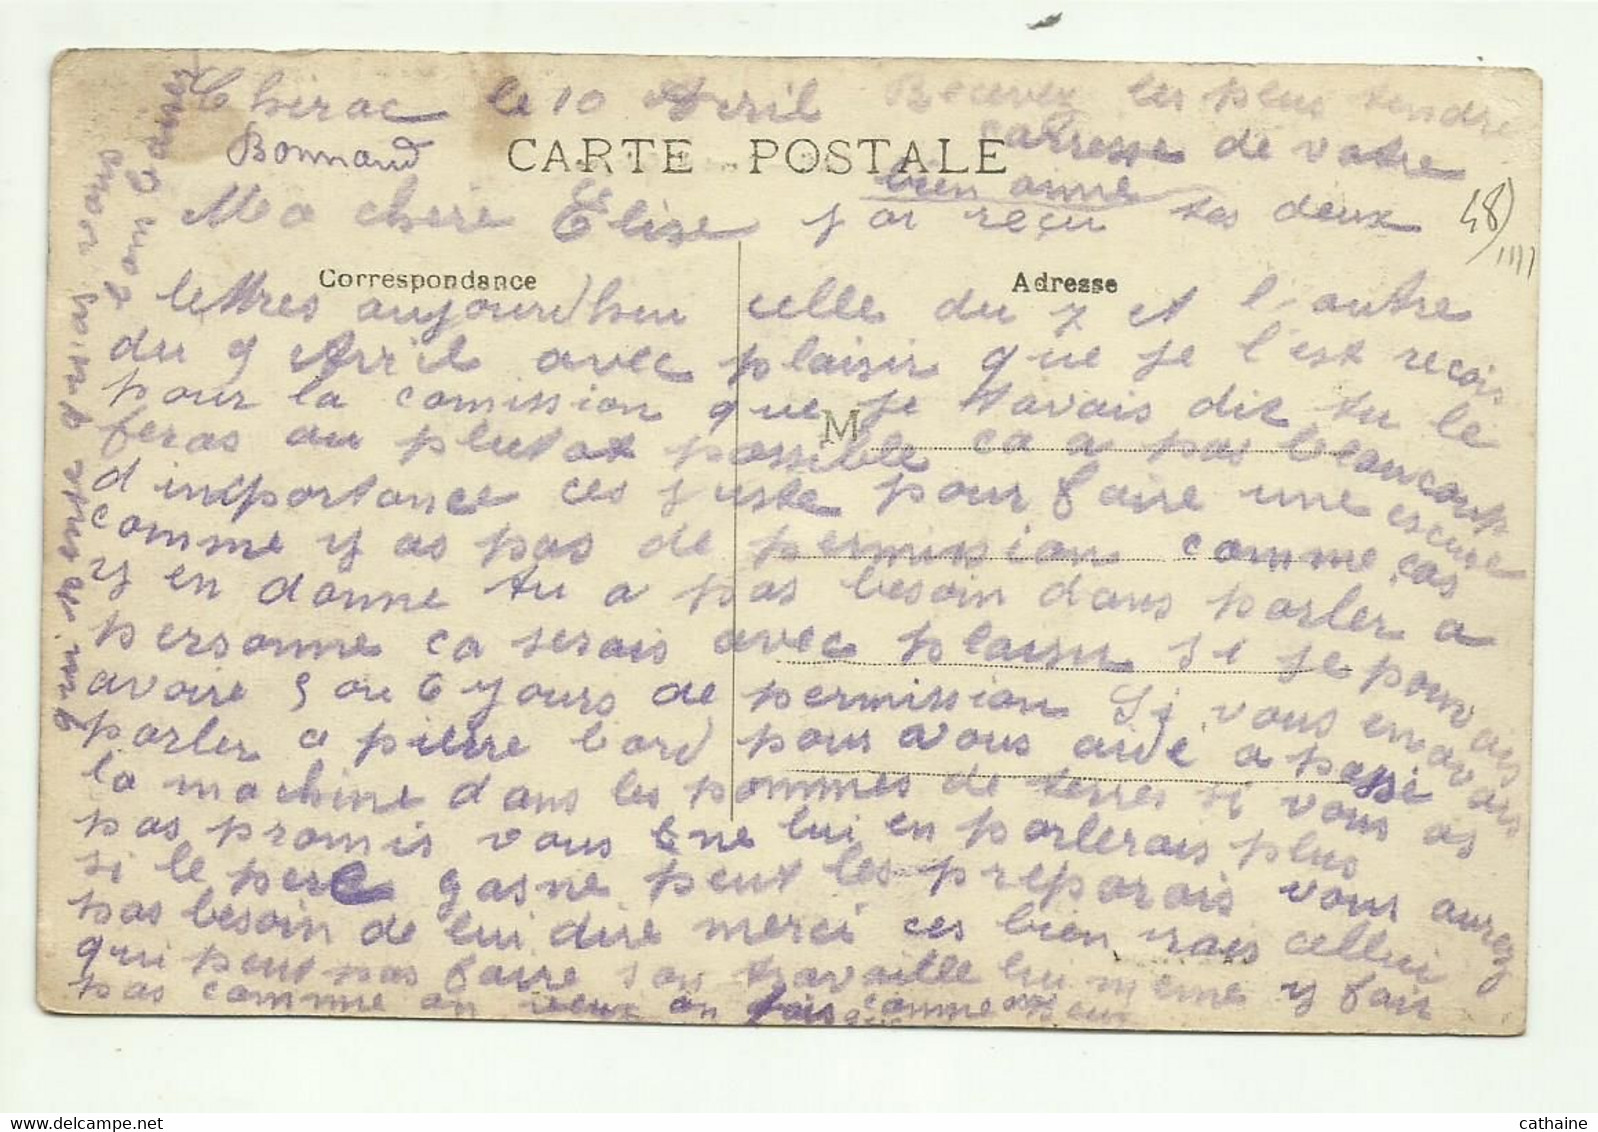 Chirac le 10 Avril
Bonnaud
CARTE POSTALE
Ma chere Elise j ai reçu tes deux
Correspondance
Adresse
lettres aujourdhui celle du 7 et l autre
du 9 Avril avec plaisir que je l'est recois
pour la comission que je tavais dit tu le
feras au plutot possible ca a pas beaucoup
M
d importance ces juste pour faire une escuse
comme y as pas de permission comme cas
y en donne tu a pas besoin dans parler a
personne ca serais avec plaisir si je pouvais
avoire 5 ou 6 jours de permission Si vous en avais
parler a pierre bord pour vous aidé a passé
la machine dans les pommes de terres si vous as
pas promis vous ne lui en parlerais plus
si le pere gasne peut les preparais vous aurez
pas besoin de lui dire merci ces bien vrais cellui
qui peut pas faire son travaille lui meme y fair
pas comme on veux on fais comme on peux
Recevez les plus tendre
carresse de votre
bien aimé
48)
cathaine